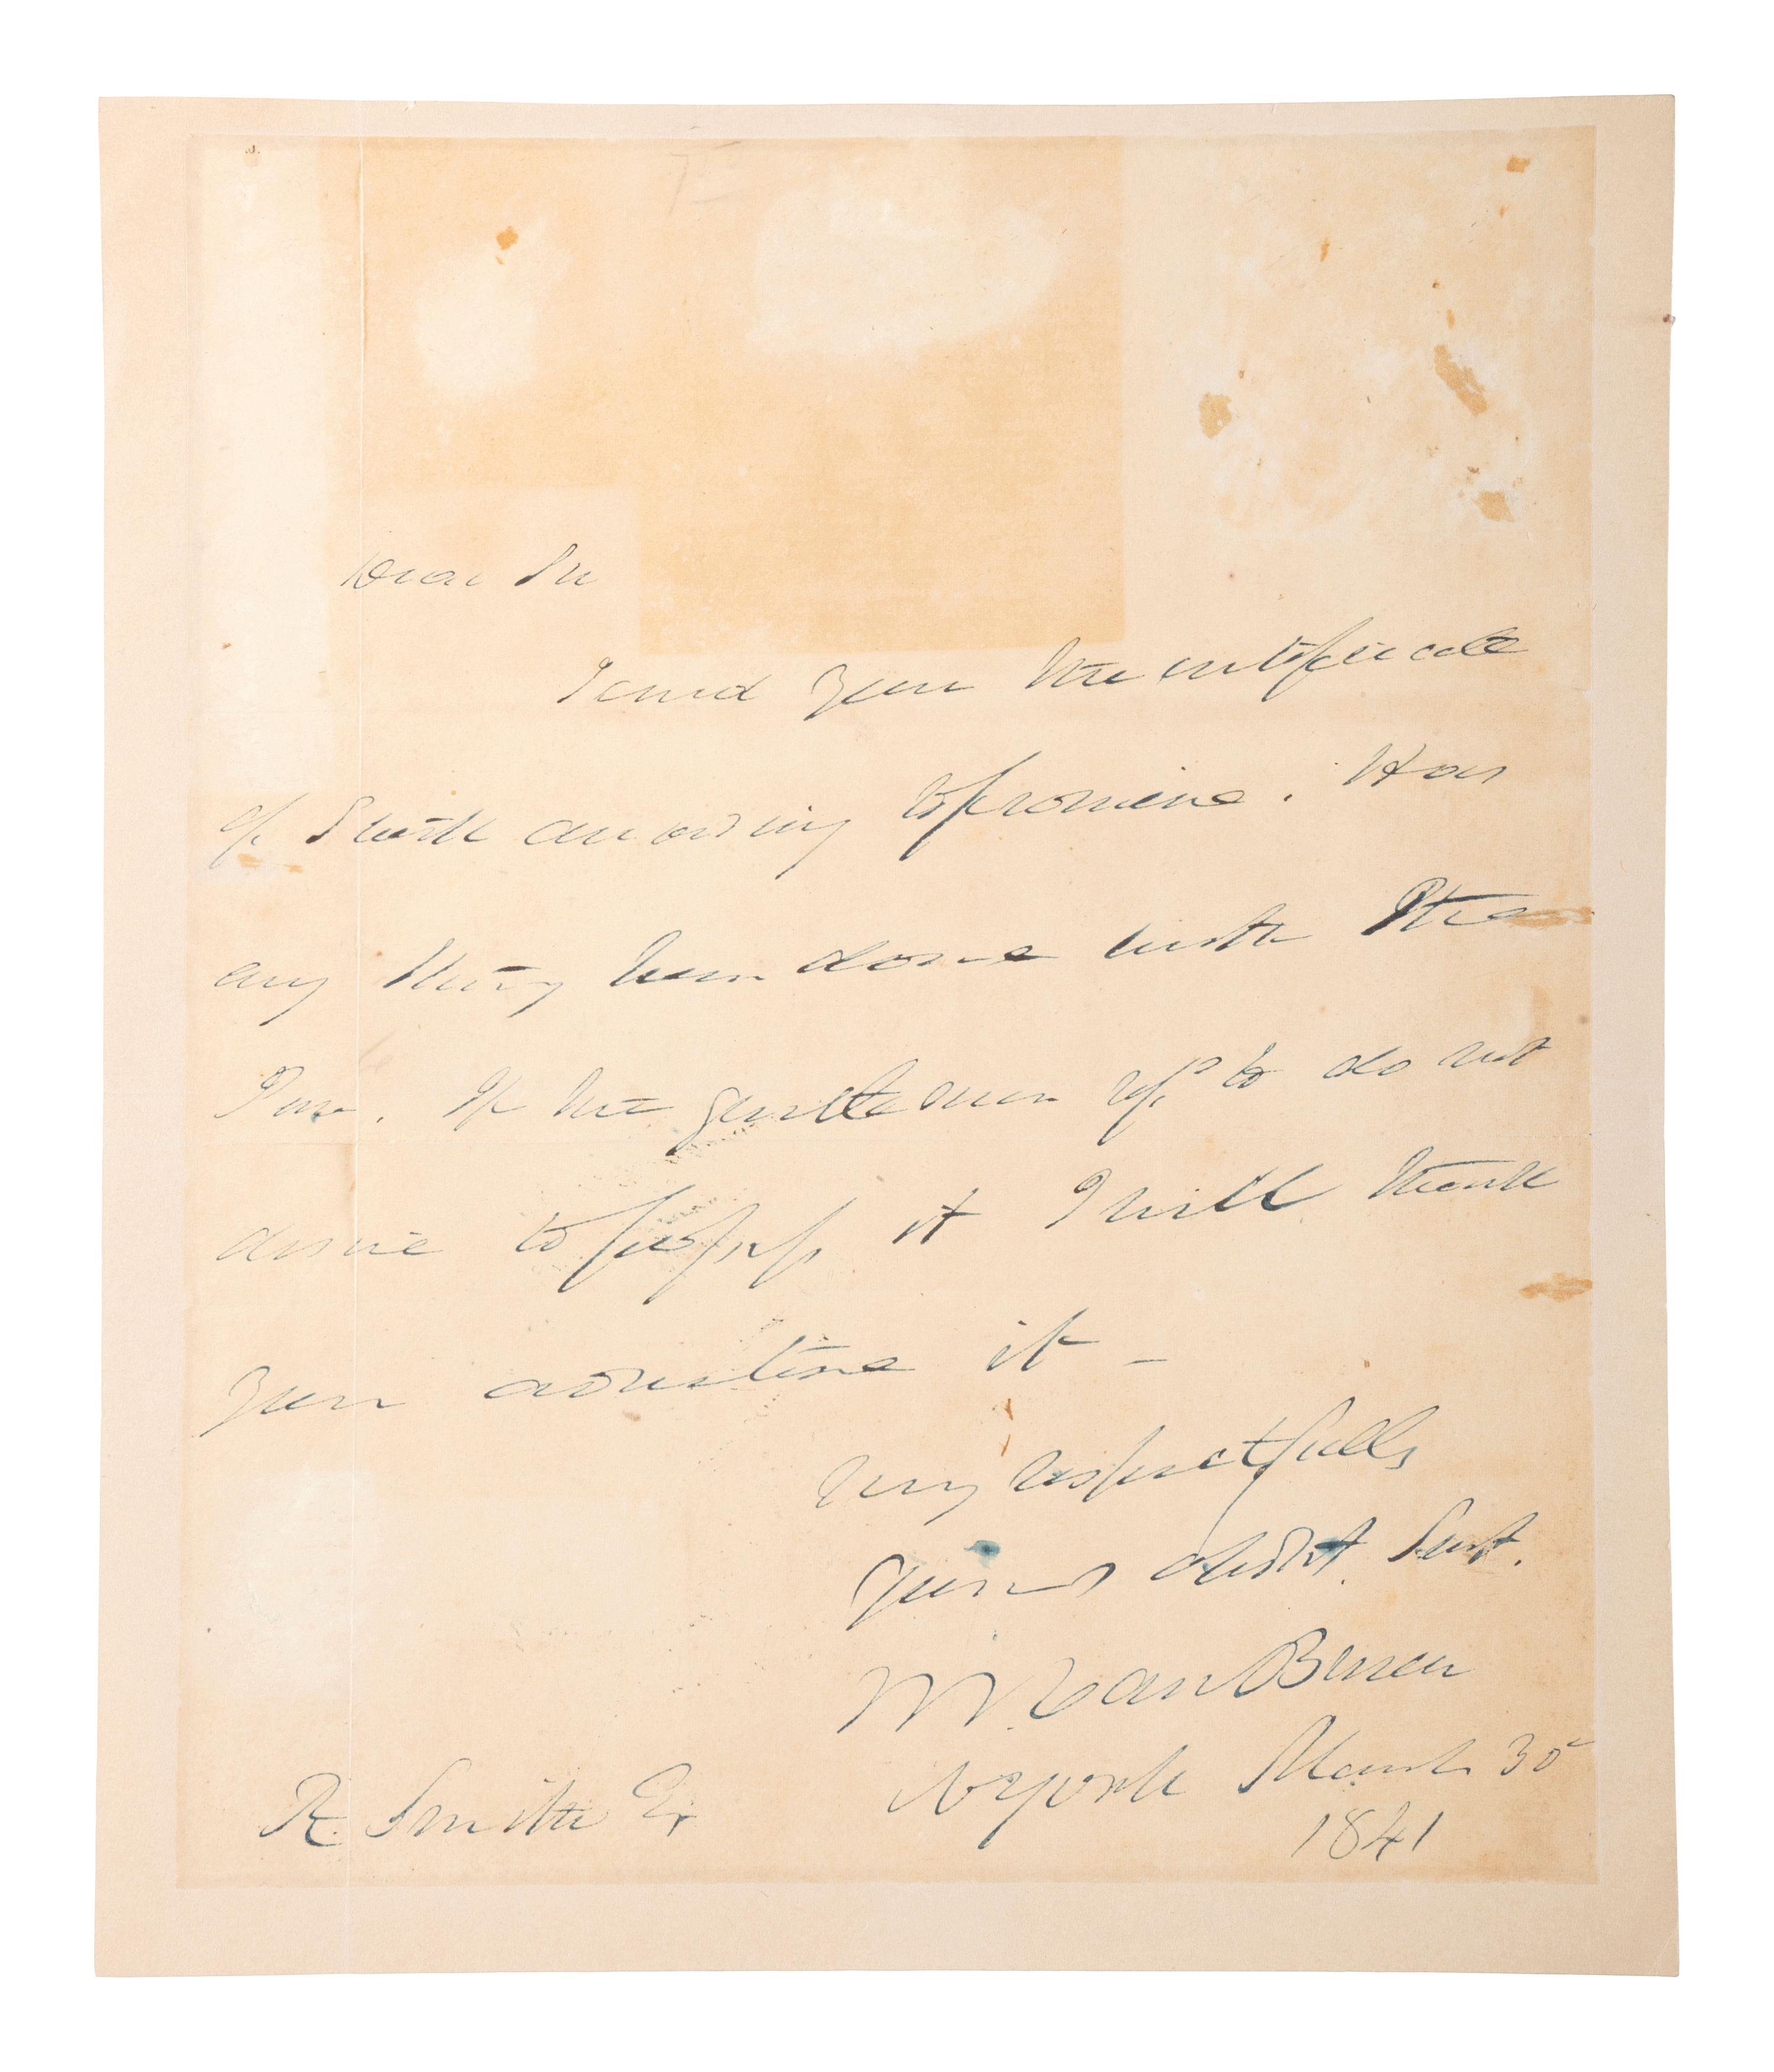 Dear Sir
I send you the certificate
of Stock according to promise. Has
any thing been done with the
If the gentlemen do not
desire to it I will thank
you it -
Very respectfully
Your obdt. Servt.
M. Van Buren
R. Smith Er NYork March 30
1841